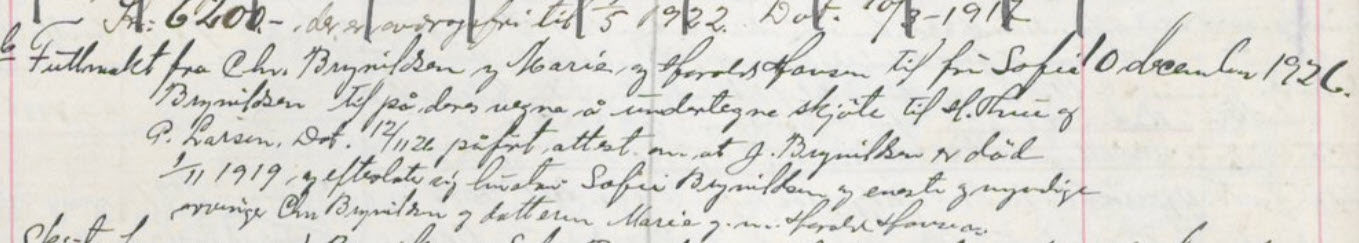 Kr: 6200.- der er avdragsfri til 1/5 1922. Dat.
6 Fullmakt fra Chr. Brynildsen og Marie og Harald Hansen til fru Sofie 10 december 1926.
Brynildsen til på deres vegne å undertegne skjøte til H. Thue og
P. Larsen. Dat. 12/11 26 påført attest om at J. Brynildsen er död
1/11 1919, og efterlate sig Sofie Brynildsen og eneste og myndige
arvinger Chr Brynildsen og datteren Marie g. m. Harald Hansen